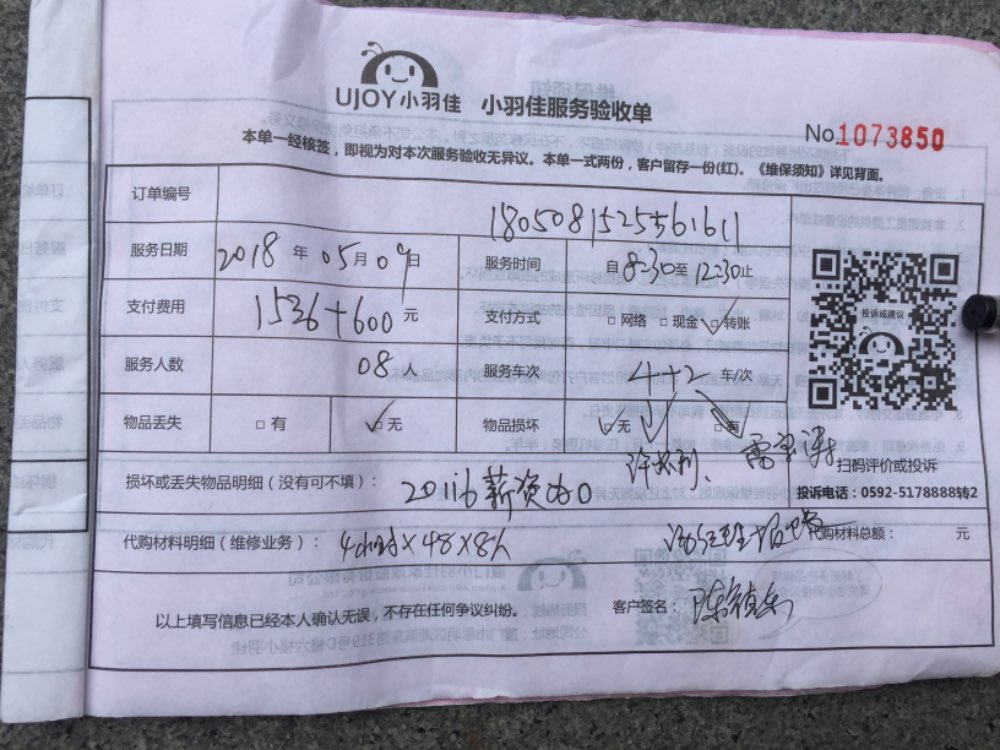 UJOY小羽佳 小羽佳服务验收单
No.1073850
本单一经核签，即视为对本次服务验收无异议。本单一式两份，客户留存一份(红)。《维保须知》详见背面。
订单编号 1805081525561611
服务日期 2018 年 05 月 09 日 服务时间 自 8:30 至 12:30 止
支付费用 1536+600 元 支付方式 □ 网络 □ 现金 ☑ 转账
投诉或建议
服务人数 08 人 服务车次 4+2 车/次
物品丢失 □ 有 ☑ 无 物品损坏 ☑ 无 □ 有
扫码评价或投诉
损坏或丢失物品明细（没有可不填）： 薪资为0
投诉电话：0592-5178888转2
代购材料明细（维修业务）： 4小时×48×8人 代购材料总额： 元
以上填写信息已经本人确认无误，不存在任何争议纠纷。 客户签名：